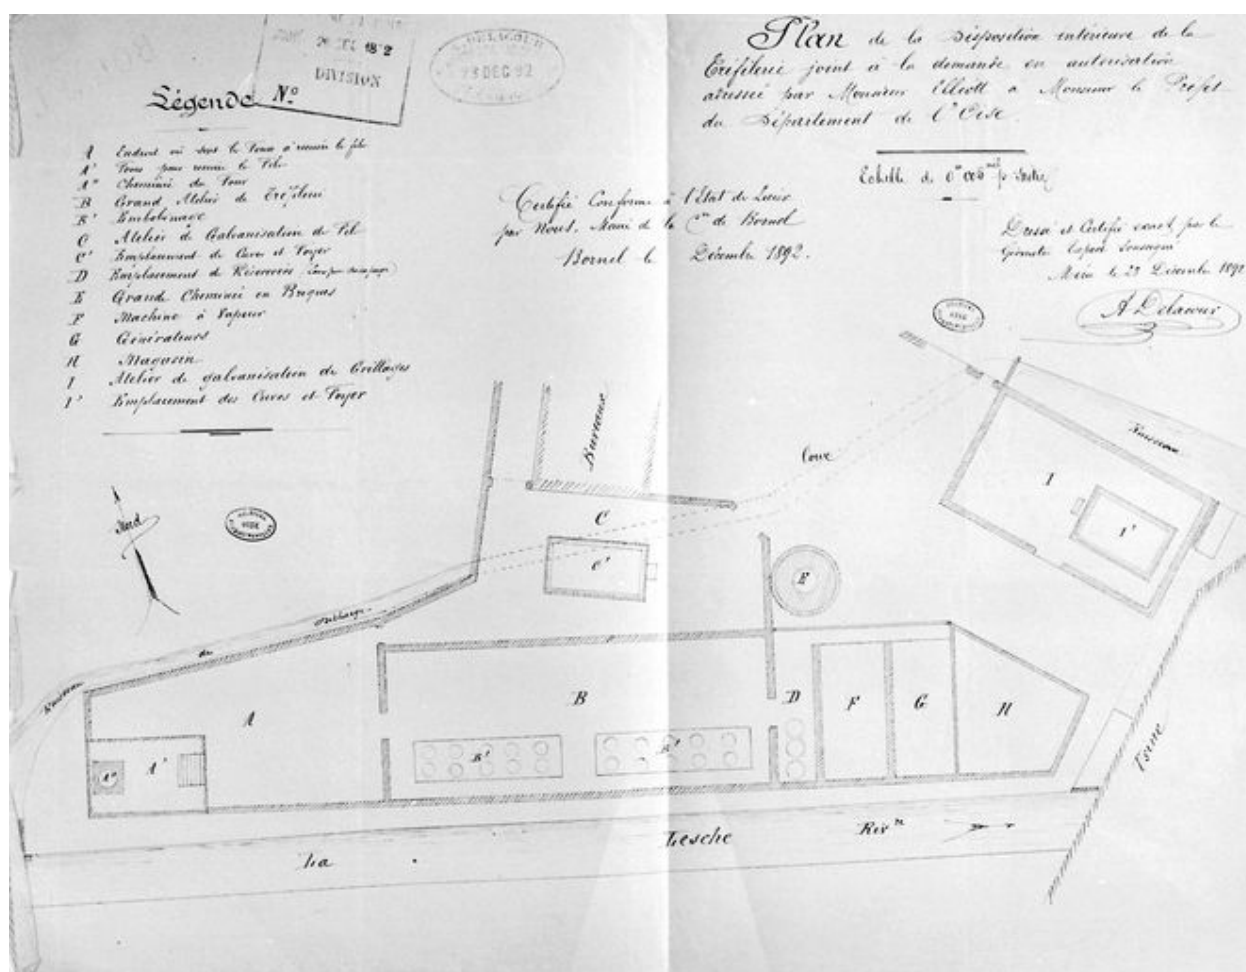 29 DEC 1892
DIVISION
DELACOUR
23 DEC 92
Légende No
A Endroit où sont les Fours à recuire le fil
A' Fours pour recuire le Fil
A" Cheminée du Four
B Grand Atelier de Tréfilerie
B' Embobinage
C Atelier de Galvanisation de Fil
C' Emplacement de Cuves et Foyer
D Emplacement de Réservoirs
E Grande Cheminée en Briques
F Machine à Vapeur
G Générateurs
H Magasin
I Atelier de galvanisation de Grillages
I' Emplacement des Cuves et Foyer
Plan de la Disposition intérieure de la
Tréfilerie joint à la demande en autorisation
adressée par Monsieur Elliott à Monsieur le Préfet
du Département de l'Oise.
Echelle de
Certifié Conforme à l'Etat de Lieux
par Nous, Maire de la Cne de Bornel
Bornel le Décembre 1892.
Dressé et Certifié exact par le
Géomètre Expert soussigné
Méru le 23 Décembre 1892
A Delacour
Bureaux
Cour
Ruisseau
I
I'
C
C'
E
Nord
Ruisseau de décharge
A
B
D
F
G
H
A"
A'
B'
B'
Usine
La Lesche Rivre